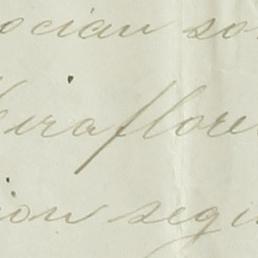 ocian so
iraflore
ion segu